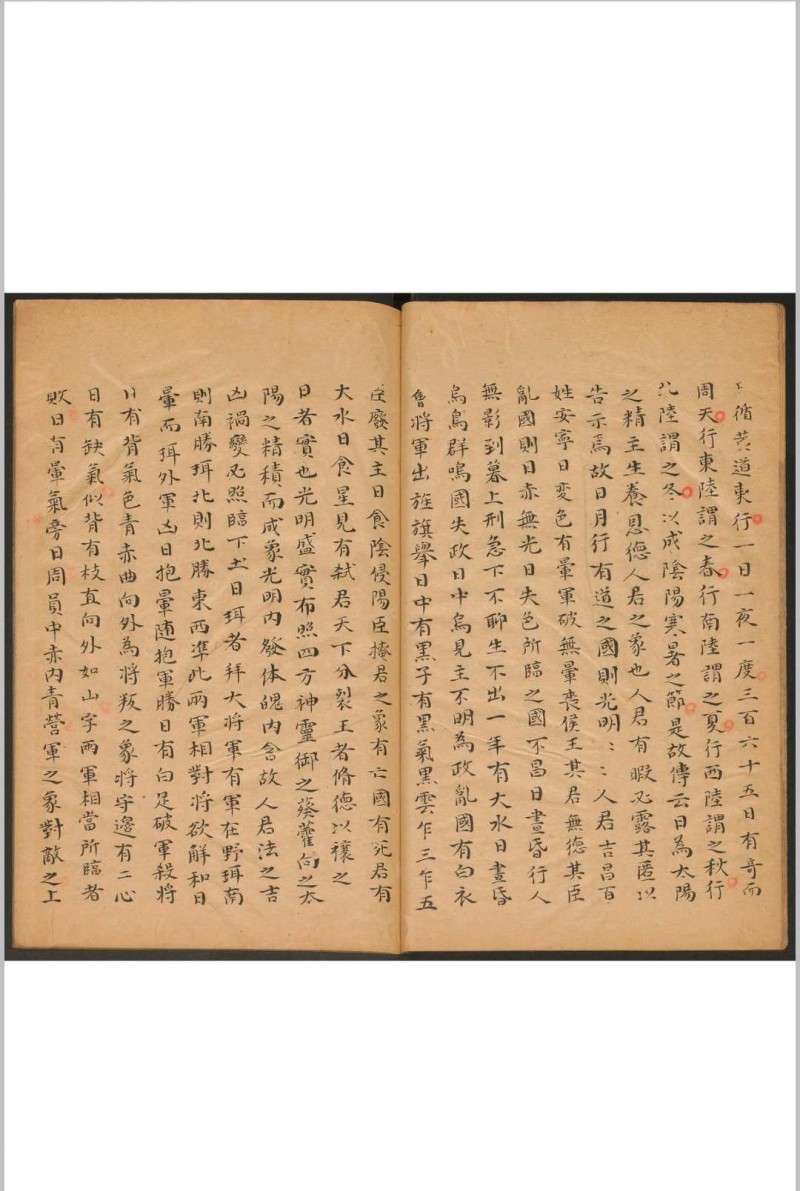 日循黃道東行一日一夜一度三百六十五日有奇而
周天行東陸謂之春行南陸謂之夏行西陸謂之秋行
北陸謂之冬以成陰陽寒暑之節是故傳云日為太陽
之精主生養恩德人君之象也人君有暇必露其匿以
告示焉故日月行有道之國則光明：：人君吉昌百
姓安寧日変色有暈軍破無暈喪侯王其君無德其臣
亂國則日赤無光日失色所臨之國不昌日晝昏行人
無影到暮上刑急下不聊生不出一年有大水日晝昏
烏鳥群鳴國失政日中烏見主不明為政亂國有白衣
會將軍出旌旗舉日中有黑子有黑氣黑雲乍三乍五
臣廢其主日食陰侵陽臣掩君之象有亡國有死君有
大水日食星見有弑君天下分裂王者脩德以禳之
日者實也光明盛實布照四方神靈御之葵藿向之太
陽之精積而成象光明內發体魄內含故人君法之吉
凶禍變必照臨下土日珥者拜大將軍有軍在野珥南
則南勝珥北則北勝東西準此兩軍相對將欲解和日
暈而珥外軍凶日抱暈随抱軍勝日有白足破軍殺將
日有背氣色青赤曲向外為將叛之象將守邊有二心
日有缺氣似背有枝直向外如山字兩軍相當所臨者
敗日有暈氣旁日周員中赤內青營軍之象對敵之上